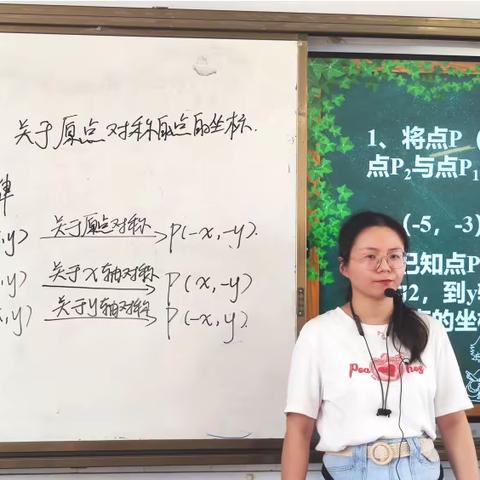 关于原点对称的点的坐标.
律
,y) 关于原点对称 P(-x,-y).
,y) 关于x轴对称 P(x,-y)
,y) 关于y轴对称 P(-x,y).
1、将点P（
点P₂与点P₁
（-5，-3）
已知点P
2，到y轴
的坐标